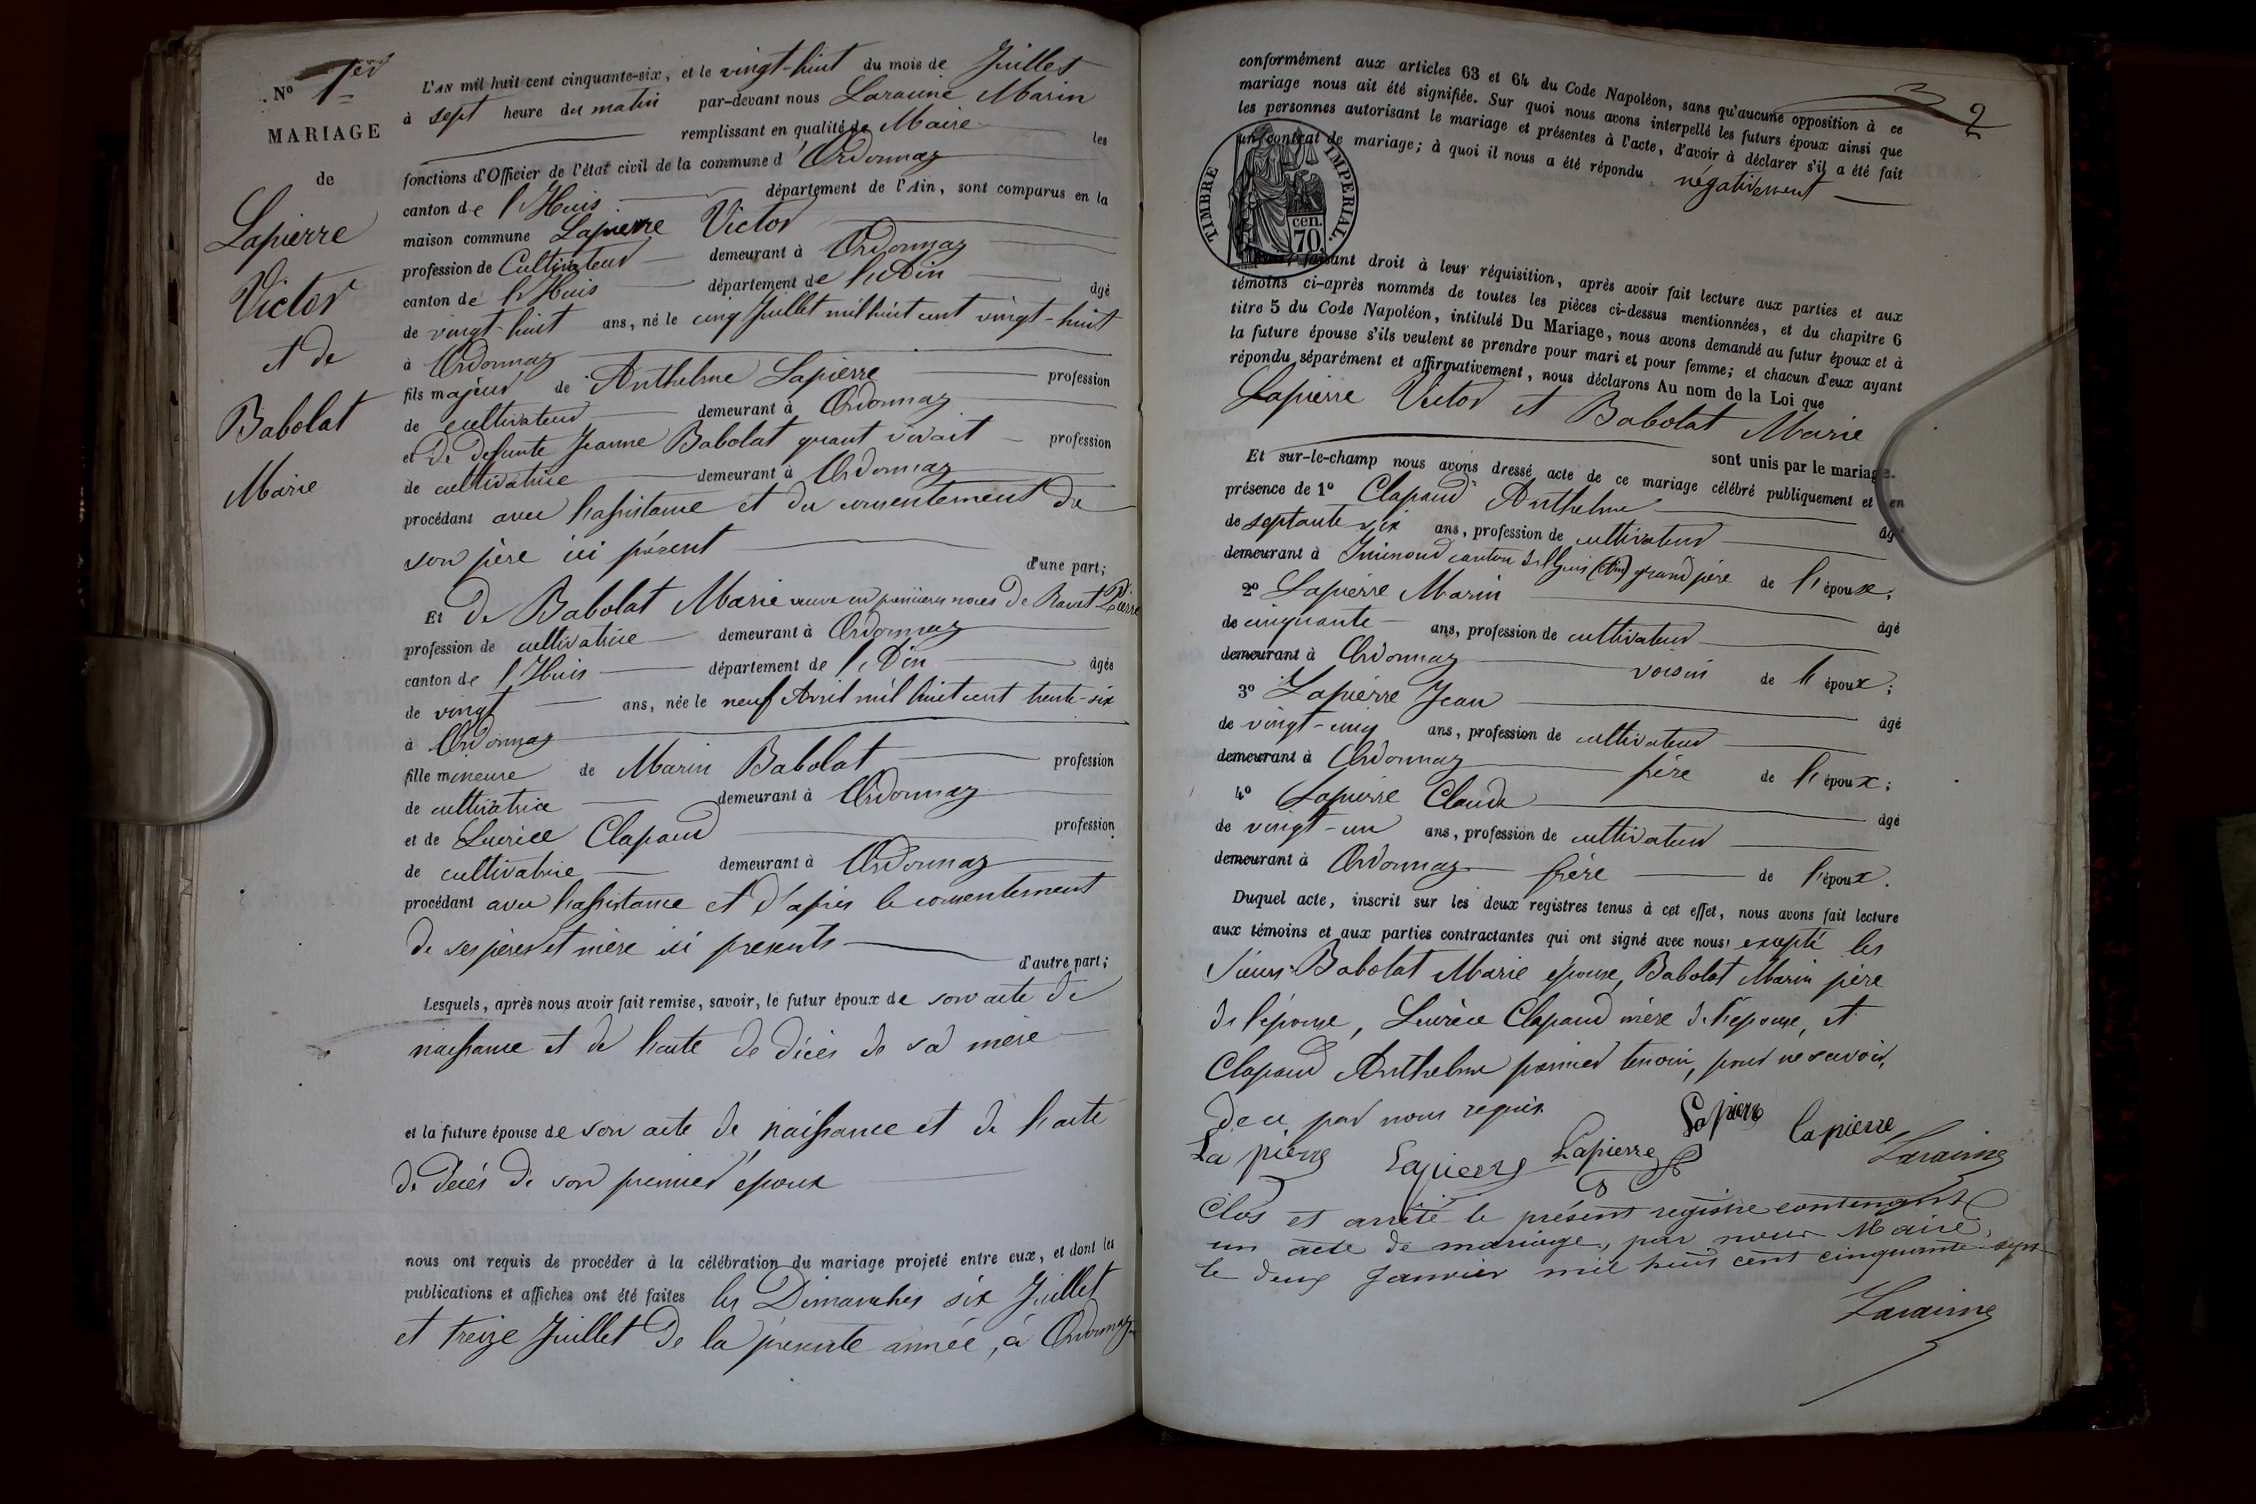 N° 1er
MARIAGE
de
Lapierre
Victor
et de
Babolat
Marie
L'AN mil huit cent cinquante-six, et le vingt-huit du mois de Juillet
à sept heure du matin par-devant nous Laraime Marin
remplissant en qualité de Maire les
fonctions d'Officier de l'état civil de la commune d'Ordonnaz
canton de l'Huis département de l'Ain, sont comparus en la
maison commune Lapierre Victor
profession de Cultivateur demeurant à Ordonnaz
canton de l'Huis département de l'Ain âgé
de vingt-huit ans, né le cinq Juillet mil huit cent vingt-huit
à Ordonnaz
fils majeur de Anthelme Lapierre profession
de cultivateur demeurant à Ordonnaz
et de defunte Jeanne Babolat quant vivait profession
de cultivatrice demeurant à Ordonnaz
procédant avec l'assistance et du consentement de
son père ici présent
d'une part;
Et De Babolat Marie veuve en premieres noces de Ravet Pierre
profession de cultivatrice demeurant à Ordonnaz
canton de l'Huis département de l'Ain âgée
de vingt ans, née le neuf Avril mil huit cent trente-six
à Ordonnaz
fille mineure de Marin Babolat profession
de cultivatrice demeurant à Ordonnaz
et de Lucrèce Clapaud profession
de cultivatrice demeurant à Ordonnaz
procédant avec l'assistance et d'après le consentement
de ses père et mère ici présents
d'autre part;
Lesquels, après nous avoir fait remise, savoir, le futur époux de son acte de
naissance et de l'acte de décès de sa mère
et la future épouse de son acte de naissance et de l'acte
de décès de son premier époux
nous ont requis de procéder à la célébration du mariage projeté entre eux, et dont les
publications et affiches ont été faites les Dimanches six Juillet
et treize Juillet de la présente année, à Ordonnaz
2
conformément aux articles 63 et 64 du Code Napoléon, sans qu'aucune opposition à ce
mariage nous ait été signifiée. Sur quoi nous avons interpellé les futurs époux ainsi que
les personnes autorisant le mariage et présentes à l'acte, d'avoir à déclarer s'il a été fait
un contrat de mariage; à quoi il nous a été répondu négativement
TIMBRE IMPERIAL.
cen.
70
faisant droit à leur réquisition, après avoir fait lecture aux parties et aux
témoins ci-après nommés de toutes les pièces ci-dessus mentionnées, et du chapitre 6
titre 5 du Code Napoléon, intitulé Du Mariage, nous avons demandé au futur époux et à
la future épouse s'ils veulent se prendre pour mari et pour femme; et chacun d'eux ayant
répondu séparément et affirmativement, nous déclarons Au nom de la Loi que
Lapierre Victor et Babolat Marie
sont unis par le mariage.
Et sur-le-champ nous avons dressé acte de ce mariage célébré publiquement et en
présence de 1° Clapaud Anthelme âgé
de septante six ans, profession de cultivateur
demeurant à Inimond canton de l'Huis (Ain) grand père de l'épouse;
2° Lapierre Marin âgé
de cinquante ans, profession de cultivateur
demeurant à Ordonnaz voisin de l'époux;
3° Lapierre Jean âgé
de vingt-cinq ans, profession de cultivateur
demeurant à Ordonnaz frère de l'époux;
4° Lapierre Claude âgé
de vingt-un ans, profession de cultivateur
demeurant à Ordonnaz frère de l'époux.
Duquel acte, inscrit sur les deux registres tenus à cet effet, nous avons fait lecture
aux témoins et aux parties contractantes qui ont signé avec nous, excepté les
sieurs Babolat Marie épouse, Babolat Marin père
de l'épouse, Lucrèce Clapaud mère de l'épouse, et
Clapaud Anthelme premier temoin, pour ne savoir,
de ce par nous requis.
Lapierre Lapierre
La pierre Lapierre Lapierre Laraime
Clos et arrêté le présent registre contenant
un acte de mariage, par nous Maire,
le deux Janvier mil huit cent cinquante-sept
Laraime